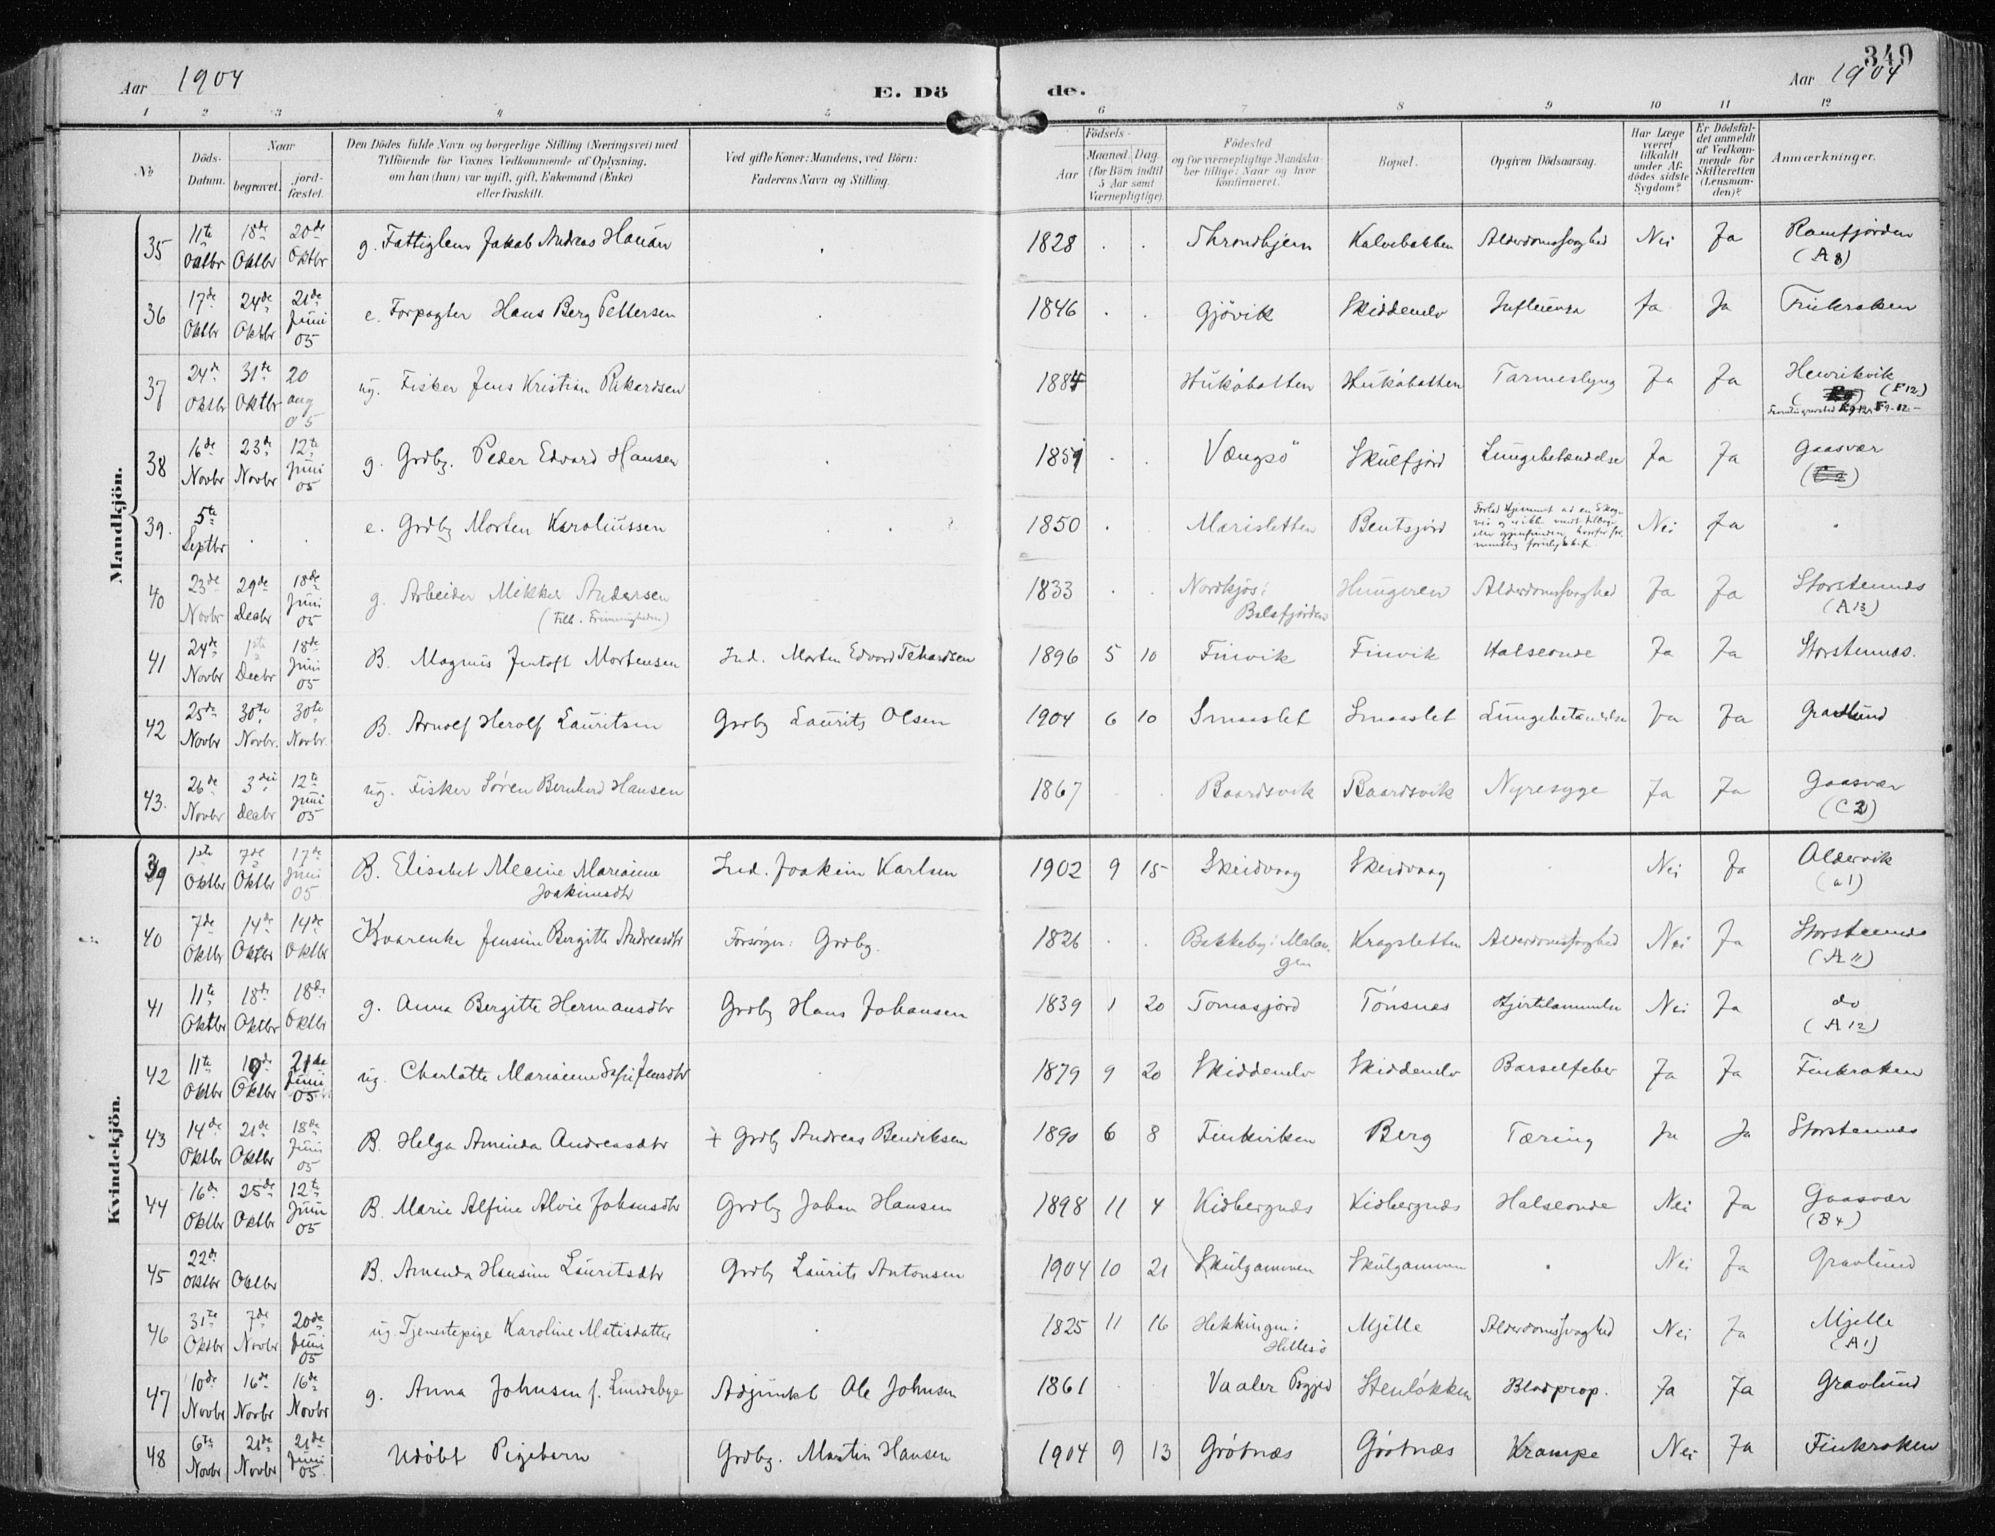 349
Aar 1904
E. Döde.
Aar 1904
1 2 3 4 5 6 7 8 9 10 11 12
No
Döds-Datum.
Naar
begravet.
jordfæstet.
Den Dödes fulde Navn og borgerlige Stilling (Næringsvei) med
Tilföiende for Voxnes Vedkommende af Oplysning,
om han (hun) var ugift, gift, Enkemand (Enke)
eller fraskilt.
Ved gifte Koner: Mandens, ved Börn:
Faderens Navn og Stilling.
Födsels-
Aar
Maaned. Dag.
(for Börn indtil 5 Aar samt Værnepligtige)
Födested
og for værnepligtige Mandskaber tillige: Naar og hvor konfirmeret.
Bopæl.
Opgiven Dödsaarsag.
Har Læge været tilkaldt under Afdödes sidste Sygdom?
Er Dödsfaldet anmeldt af Vedkommende for Skifteretten (Lensmanden)?
Anmærkninger.
Mandkjön.
35 11te Oktbr 18de Oktbr 20de Oktbr g. Fattiglem Jakob Andreas Hauan 1828 Throndhjem Kalvebakken Alderdomssvaghed Nei Ja Ramfjorden (A 8)
36 17de Oktbr 24de Oktbr 21de Juni 05 e. Forpagter Hans Berg Pettersen 1846 Gjövik Skiddenelv Influensa Ja Ja Finkroken
37 24de Oktbr 31te Oktbr 20 aug 05 ug. Fisker Jens Kristian Rikardsen 1884 Huköbotten Huköbotten Tarmeslyng Ja Ja Henrikvik (F 12)
38 16de Novbr 23de Novbr 12te Juni 05 g. Grdbr. Peder Edvard Hansen 1851 Vængsö Skulfjord Lungebetændelse Ja Ja Gaasvær
39. 5te Septbr e. Grdbr Morten Karoliussen 1850 Marisletten Bentsjord Nei Ja
40 23de Novbr 29de Decbr 18de Juni 05 g. Arbeider Mikkel Andersen 1833 Nordkjos i Balsfjorden Hungeren Alderdomssvaghed Ja Ja Storstennes (A 13)
41 24de Novbr 1ste Decbr 18de Juni 05 B. Magnus Jentoft Mortensen Ind. Morten Edvard 1896 5 10 Finvik Finvik Halseonde Ja Ja Storstennes.
42 25de Novbr 30te Novbr. 30te Novbr. B. Arnolf Herolf Lauritsen Grdbr Laurits Olsen 1904 6 10 Smaaslet Smaaslet Lungebetændelse Ja Ja Gravlund
43. 26de Novbr 3die Decbr 12te Juni 05 ug. Fisker Sören Bernhard Hansen 1867 Baardsvik Baardsvik Nyresyge Ja Ja Gaasvær (C 2)
Kvindekjön.
39 1ste Oktbr 7de Oktbr 17de Juni 05 B. Elisabet Marianne Joakimsdtr Ind. Joakim Karlsen 1902 9 15 Skeidvaag Skeidvaag Nei Ja Aldervik (a 1)
40 7de Oktbr 14de Oktbr 14de Oktbr Kvarenke Jensine Bergitte Andreasdtr Forsörger: Grdbr. 1826 Bakkeby i Malangen Kragsletten Alderdomssvaghed Nei Ja Storstennes (A 11)
41 11te Oktbr 18de Oktbr 18de Oktbr g. Anna Bergitte Hermansdtr Grdbr Hans Johansen 1839 1 20 Tomasjord Tönsnes Hjertelammelse Nei Ja do (A 12)
42 11te Oktbr 19de Oktbr 21de Juni 05 ug. Charlotte Marianne Sofie Jensdtr 1879 9 20 Skiddenelv Skiddenelv Barselfeber Ja Ja Finkroken
43 14de Oktbr 21de Oktbr 18de Juni 05 B. Helga Aminda Andreasdtr + Grdbr Andreas Bendiksen 1890 6 8 Finkviken Berg Tæring Ja Ja Storstennes
44 16de Oktbr 25de Oktbr 12te Juni 05 B. Marie Alfine Alvie Johansdtr Grdbr Johan Hansen 1898 11 4 Kidbergnes Kidbergnes Halseonde Nei Ja Gaasvær (B 4)
45 22de Oktbr Oktbr B. Amanda Hansine Lauritsdtr Grdbr Laurits Antonsen 1904 10 21 Skulgammen Skulgammen Nei Ja Gravlund
46 31te Oktbr 7de Novbr 20de Juni 05 ug. Tjenestepige Karoline Matisdatter 1825 11 16 Hekkingen i Hillesö Mjelle Alderdomssvaghed Nei Ja Mjelle (A 1)
47 10de Novbr 16de Novbr 16de Novbr g. Anna Johnsen f. Lundebye Adjunkt Ole Johnsen 1861 Vaaler Pgjd Stenlökken Blodprop. Ja Ja Gravlund
48 6te Novbr 21de Novbr 21de Juni 05. Udöbt Pigebarn Grdbr. Martin Hansen 1904 9 13 Grötnæs Grötnæs Krampe Nei Ja Finkroken